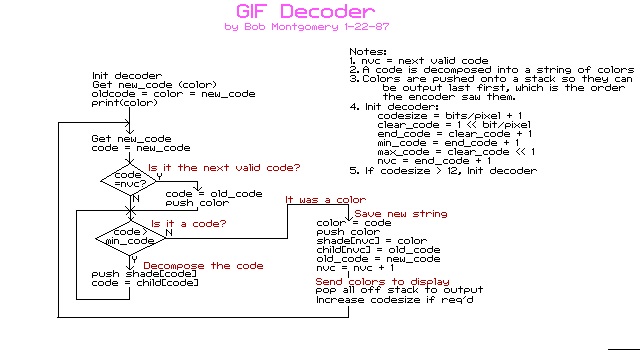 GIF Decoder
by Bob Montgomery 1-22-87
Notes:
1. nvc = next valid code
2. A code is decomposed into a string of colors
3. Colors are pushed onto a stack so they can
be output last first, which is the order
the encoder saw them.
4. Init decoder:
codesize = bits/pixel + 1
clear_code = 1 << bit/pixel
end_code = clear_code + 1
min_code = end_code + 1
max_code = clear_code << 1
nvc = end_code + 1
5. If codesize > 12, Init decoder
Init decoder
Get new_code (color)
oldcode = color = new_code
print(color)
Get new_code
code = new_code
Is it the next valid code?
code
=nvc?
Y
N
code = old_code
push color
Is it a code?
code >
min_code
N
Y
Decompose the code
push shade[code]
code = child[code]
It was a color
Save new string
color = code
push color
shade[nvc] = color
child[nvc] = old_code
old_code = new_code
nvc = nvc + 1
Send colors to display
pop all off stack to output
Increase codesize if req'd